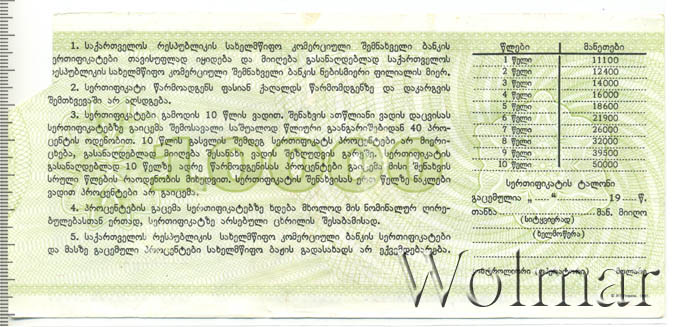 1. საქართველოს რესპუბლიკის სახელმწიფო კომერციული შემნახველი ბანკის
სერთიფიკატები თავისუფლად იყიდება და მიიღება გასანაღდებლად საქართველოს
რესპუბლიკის სახელმწიფო კომერციული შემნახველი ბანკის ნებისმიერი ფილიალის მიერ.
2. სერთიფიკატი წარმოადგენს ფასიან ქაღალდს წარმომდგენზე და დაკარგვის
შემთხვევაში არ აღსდგება.
3. სერთიფიკატები გამოდის 10 წლის ვადით. შენახვის ათწლიანი ვადის დაცვისას
სერთიფიკატებზე გაიცემა შემოსავალი საშუალოდ წლიური გაანგარიშებიდან 40 პრო-
ცენტის ოდენობით. 10 წლის გასვლის შემდეგ სერთიფიკატს პროცენტები არ მიერი-
ცხება, გასანაღდებლად მიიღება შესანახი ვადის შეზღუდვის გარეშე. სერთიფიკატის
გასანაღდებლად 10 წელზე ადრე წარმოდგენისას პროცენტები გაიცემა მისი შენახვის
სრული წლების რაოდენობის მიხედვით. სერთიფიკატის შენახვისას ერთ წელზე ნაკლები
ვადით პროცენტები არ გაიცემა.
4. პროცენტების გაცემა სერთიფიკატებზე ხდება მხოლოდ მის ნომინალურ ღირე-
ბულებასთან ერთად, სერთიფიკატზე არსებული ცხრილის შესაბამისად.
5. საქართველოს რესპუბლიკის სახელმწიფო კომერციული ბანკის სერთიფიკატები
და მასზე გაცემული პროცენტები სახელმწიფო ბაჟის გადასახადს არ ექვემდებარება.
წლები მანეთები
1 წელი 11100
2 წელი 12400
3 წელი 14000
4 წელი 16000
5 წელი 18600
6 წელი 21900
7 წელი 26000
8 წელი 32000
9 წელი 39300
10 წელი 50000
სერთიფიკატის ტალონი
გაცემულია „ “ 19 წ.
თანხა მან. მიიღო
(სიტყვიერად)
(ხელმოწერა)
კონტროლიორი მოლარე
Wolmar